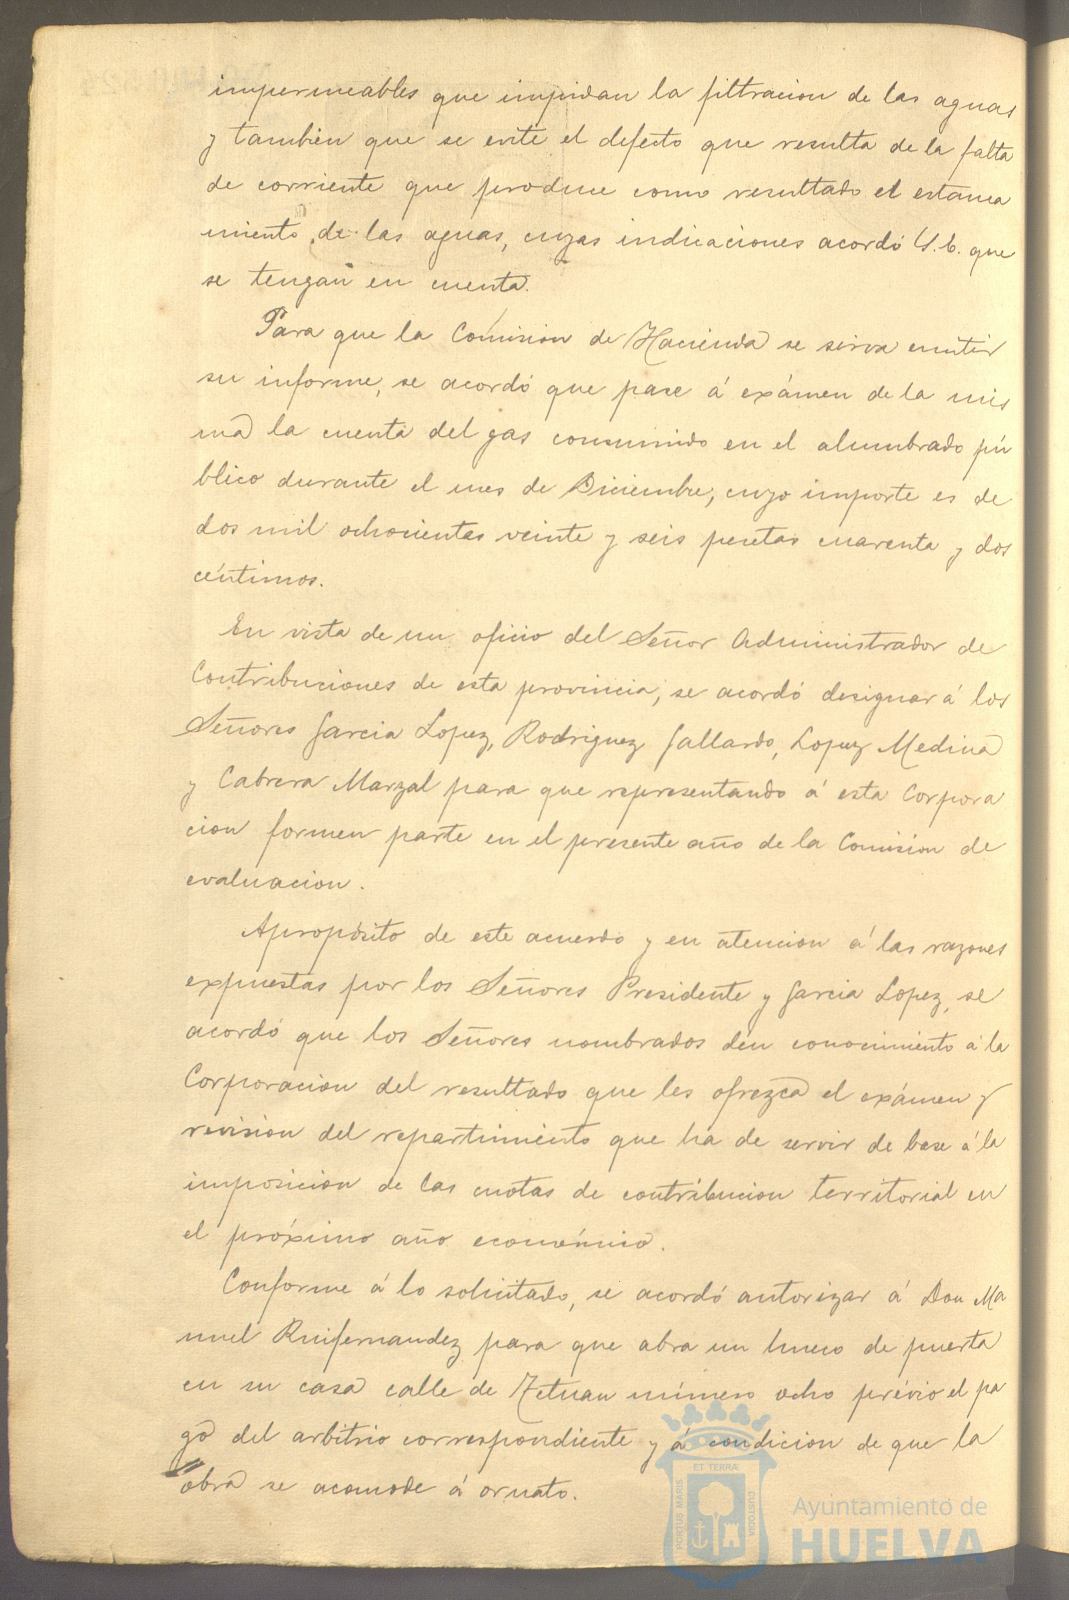 impermeables que impidan la filtracion de las aguas
y tambien que se evite el defecto que resulta de la falta
de corriente que produce como resultado el estanca
miento de las aguas, cuyas indicaciones acordó S.E. que
se tengan en cuenta.
Para que la Comision de Hacienda se sirva emitir
su informe, se acordó que pase á exámen de la mis
ma la cuenta del gas consumido en el alumbrado pú
blico durante el mes de Diciembre, cuyo importe es de
dos mil ochocientas veinte y seis pesetas cuarenta y dos
céntimos.
En vista de un oficio del Señor Administrador de
Contribuciones de esta provincia, se acordó designar á los
Señores Garcia Lopez, Rodriguez Gallardo, Lopez Medina
y Cabrera Marzal para que representando á esta Corpora
cion formen parte en el presente año de la Comision de
evaluacion.
Apropósito de este acuerdo y en atencion á las razones
expuestas por los Señores Presidente y Garcia Lopez, se
acordó que los Señores nombrados den conocimiento á la
Corporacion del resultado que les ofrezca el exámen y
revision del repartimiento que ha de servir de base á la
imposicion de las cuotas de contribucion territorial en
el próximo año económico.
Conforme á lo solicitado, se acordó autorizar á Don Ma
nuel Ruifernandez para que abra un hueco de puerta
en su casa calle de Tetuan número ocho prévio el pa
go del arbitrio correspondiente y á condicion de que la
obra se acomode á ornato.
ET TERRA
PORTUS MARIS
CUSTODIA
Ayuntamiento de
HUELVA